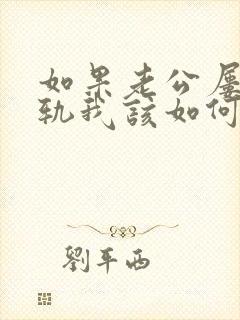 如果老公屡
轨我该如何
劉平西